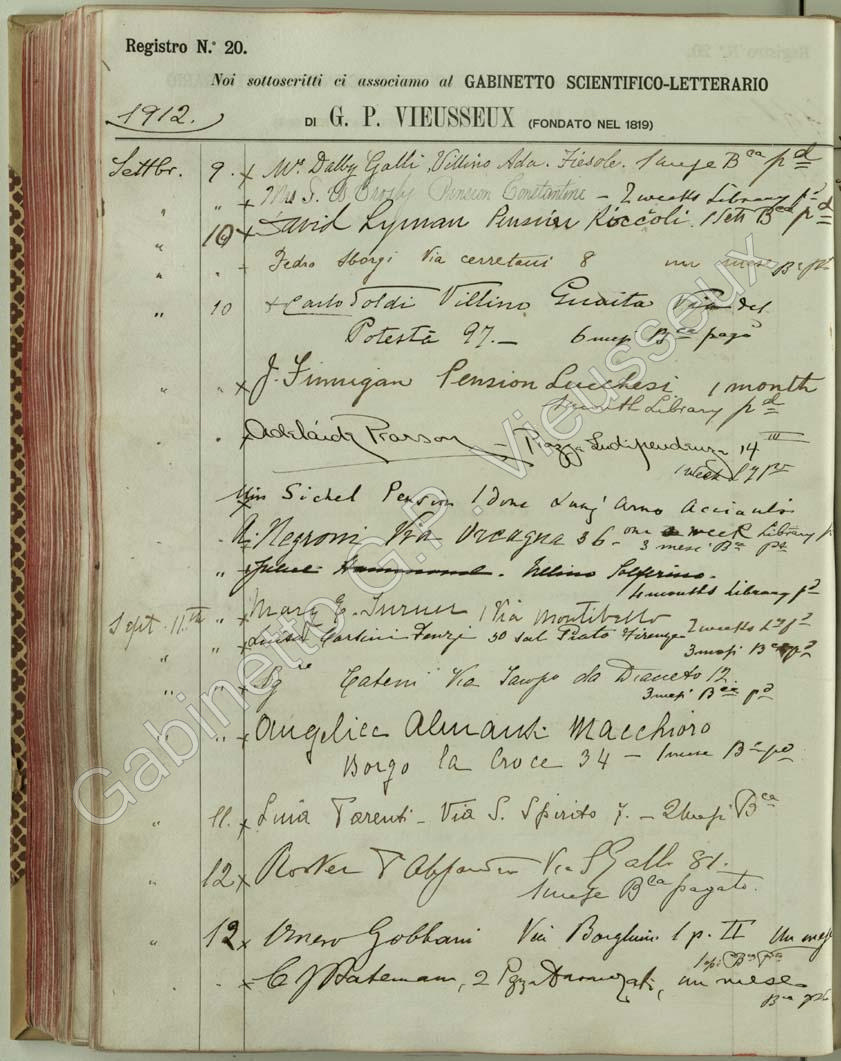 Registro N.º 20.
Noi sottoscritti ci associamo al GABINETTO SCIENTIFICO-LETTERARIO
1912.
DI G. P. VIEUSSEUX (FONDATO NEL 1819)
Settbr. 9. x Mr. Dalby Galli Villino Ada. Fiesole. 1 mese Bca pd
" " x Mrs S. Crosby Pension Constantine - 2 weeks Library pd
" 10 x David Lyman Pension Riccioli. 1 Sett Bca pd
" " Pedro Sborgi Via cerretani 8 un mese Ba
" 10 x Carlo Soldi Villino Guaita Via del
Potestà 97. - 6 mesi Bca pagò
" " x J. Finnigan Pension Lucchesi 1 month
1 month Library pd
x Adelaide Pearson - Piazza Indipendenza 14 III
1 week
Miss Sichel Pension Lung' Arno Acciaioli
one week Library
A. Negroni Via Orcagna 36 -
3 mesi Ba pd
Hammond. Villino Solferino.
4 months Library pd
Sept. 11th " Mary E. Turner 1 Via Montebello
2 weeks Ly pd
" " Luisa Corsini 50 sul Prato Firenze
3 mesi Ba pd
" " x Sg Cateni Via Jacopo da Diacceto 12.
3 mesi Bca pd
" " x Angelica Almansi Macchioro
Borgo la Croce 34 - 1 mese Ba pd
" 11. x Livia Parenti - Via S. Spirito 7. - 2 mesi Bca
" 12 x Via S Gallo 81.
1 mese Bca pagato.
" 12 x Gobbani Via Borghini 1 p. II un mese
x C J Bateman, 2 un mese
Bca
Gabinetto G.P. Vieusseux